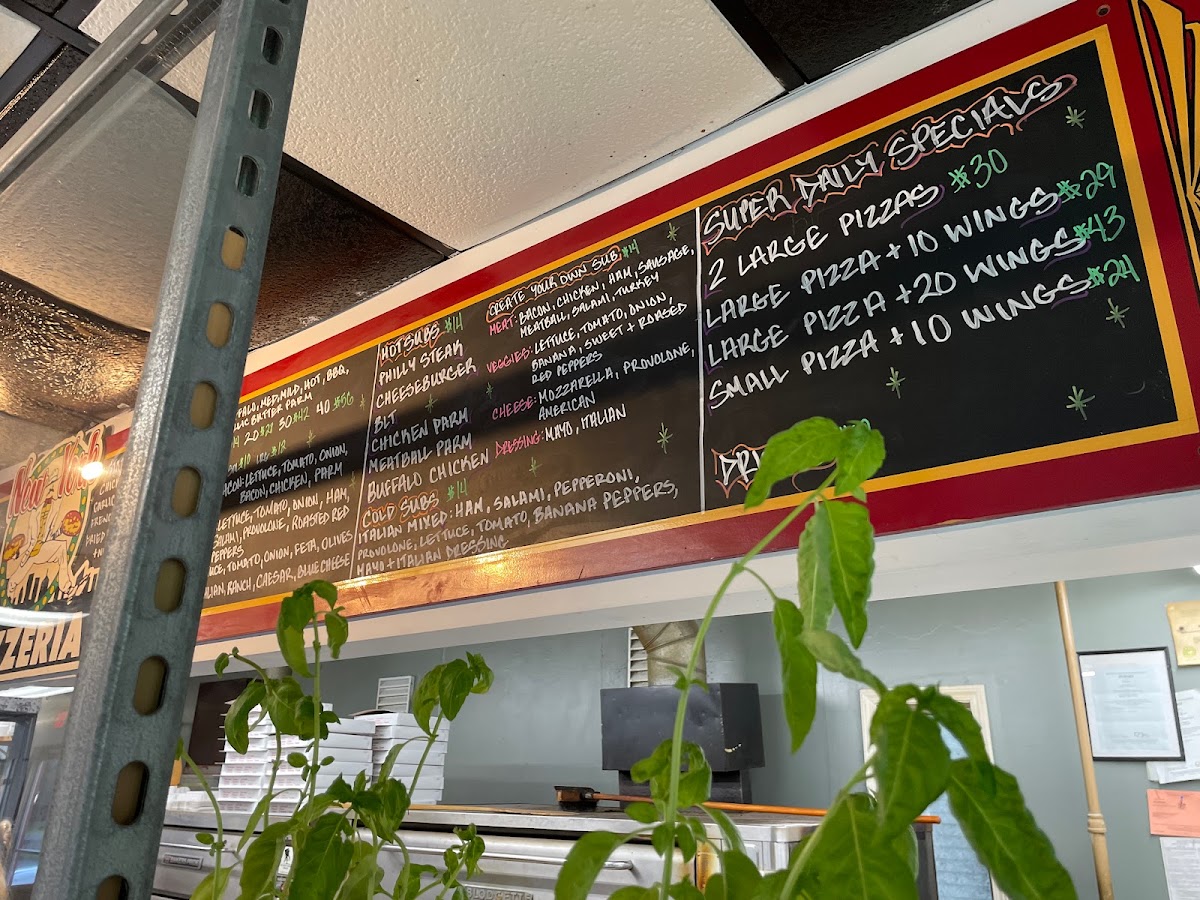 New York
ZZERIA
FALO, MED, MILD, HOT, BBQ,
LIC BUTTER PARM
20 $21 30 $42 40 $56
$10 LRG $12
ACON: LETTUCE, TOMATO, ONION,
BACON, CHICKEN, PARM
LETTUCE, TOMATO, ONION, HAM,
SALAMI, PROVOLONE, ROASTED RED
PEPPERS
CE, TOMATO, ONION, FETA, OLIVES
LIAN, RANCH, CAESAR, BLUE CHEESE
HOT SUBS $14
PHILLY STEAK
CHEESEBURGER
BLT
CHICKEN PARM
MEATBALL PARM
BUFFALO CHICKEN
COLD SUBS $14
ITALIAN MIXED: HAM, SALAMI, PEPPERONI,
PROVOLONE, LETTUCE, TOMATO, BANANA PEPPERS,
MAYO + ITALIAN DRESSING
CREATE YOUR OWN SUB $14
MEAT: BACON, CHICKEN, HAM, SAUSAGE,
MEATBALL, SALAMI, TURKEY
VEGGIES: LETTUCE, TOMATO, ONION,
BANANA, SWEET + ROASED
RED PEPPERS
CHEESE: MOZZARELLA, PROVOLONE,
AMERICAN
DRESSING: MAYO, ITALIAN
SUPER DAILY SPECIALS
2 LARGE PIZZAS $30
LARGE PIZZA + 10 WINGS $29
LARGE PIZZA + 20 WINGS $43
SMALL PIZZA + 10 WINGS $24